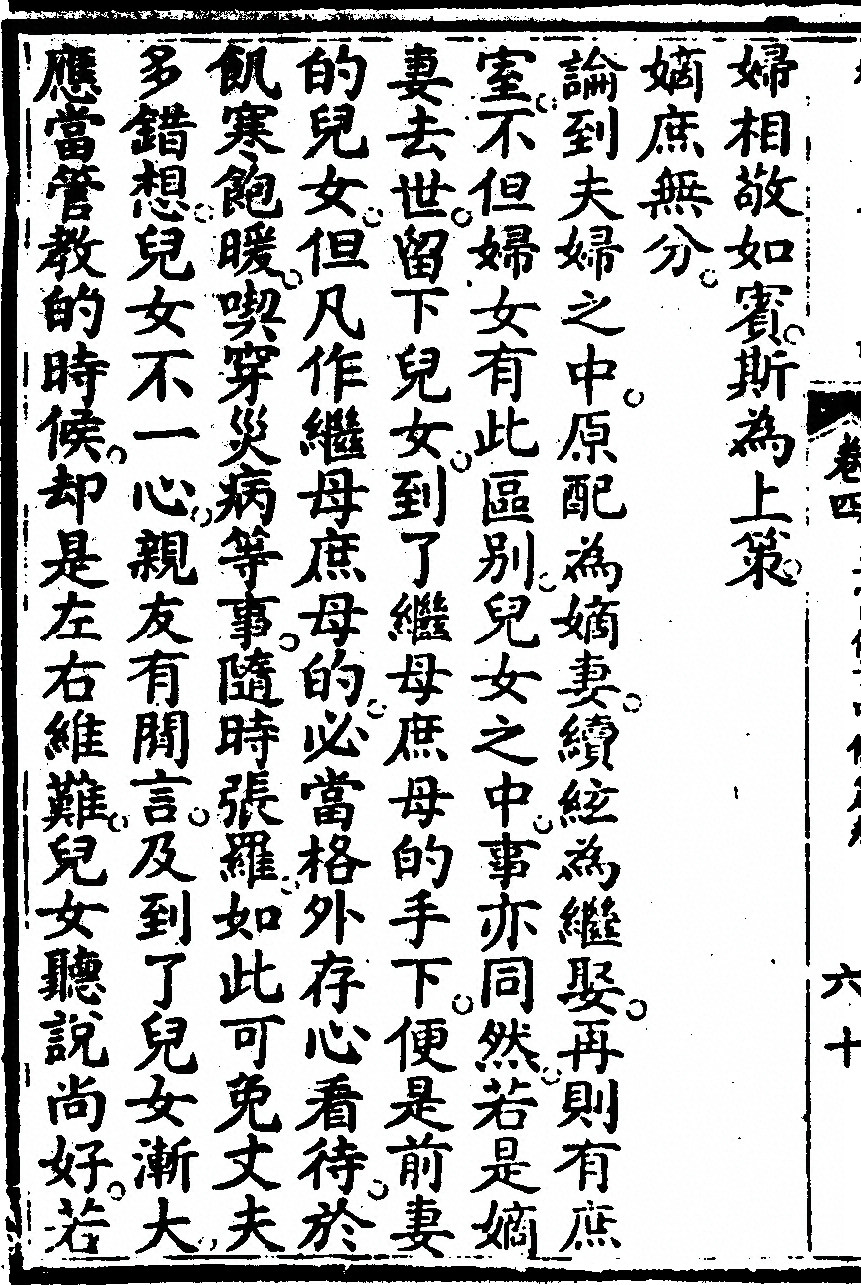 婦相敬如賓。斯為上策。
嫡庶無分。
論到夫婦之中。原配為嫡妻。續絃為繼娶。再則有庶
室。不但婦女有此區别。兒女之中。事亦同然。若是嫡
妻去世。留下兒女。到了繼母庶母的手下。便是前妻
的兒女。但凡作繼母庶母的。必當格外存心看待。於
飢寒飽暖。喫穿災病等事。隨時張羅。如此可免丈夫
多錯想。兒女不一心。親友有閒言。及到了兒女漸大。
應當管教的時候。却是左右維難。兒女聽說尚好。若
卷四
六十